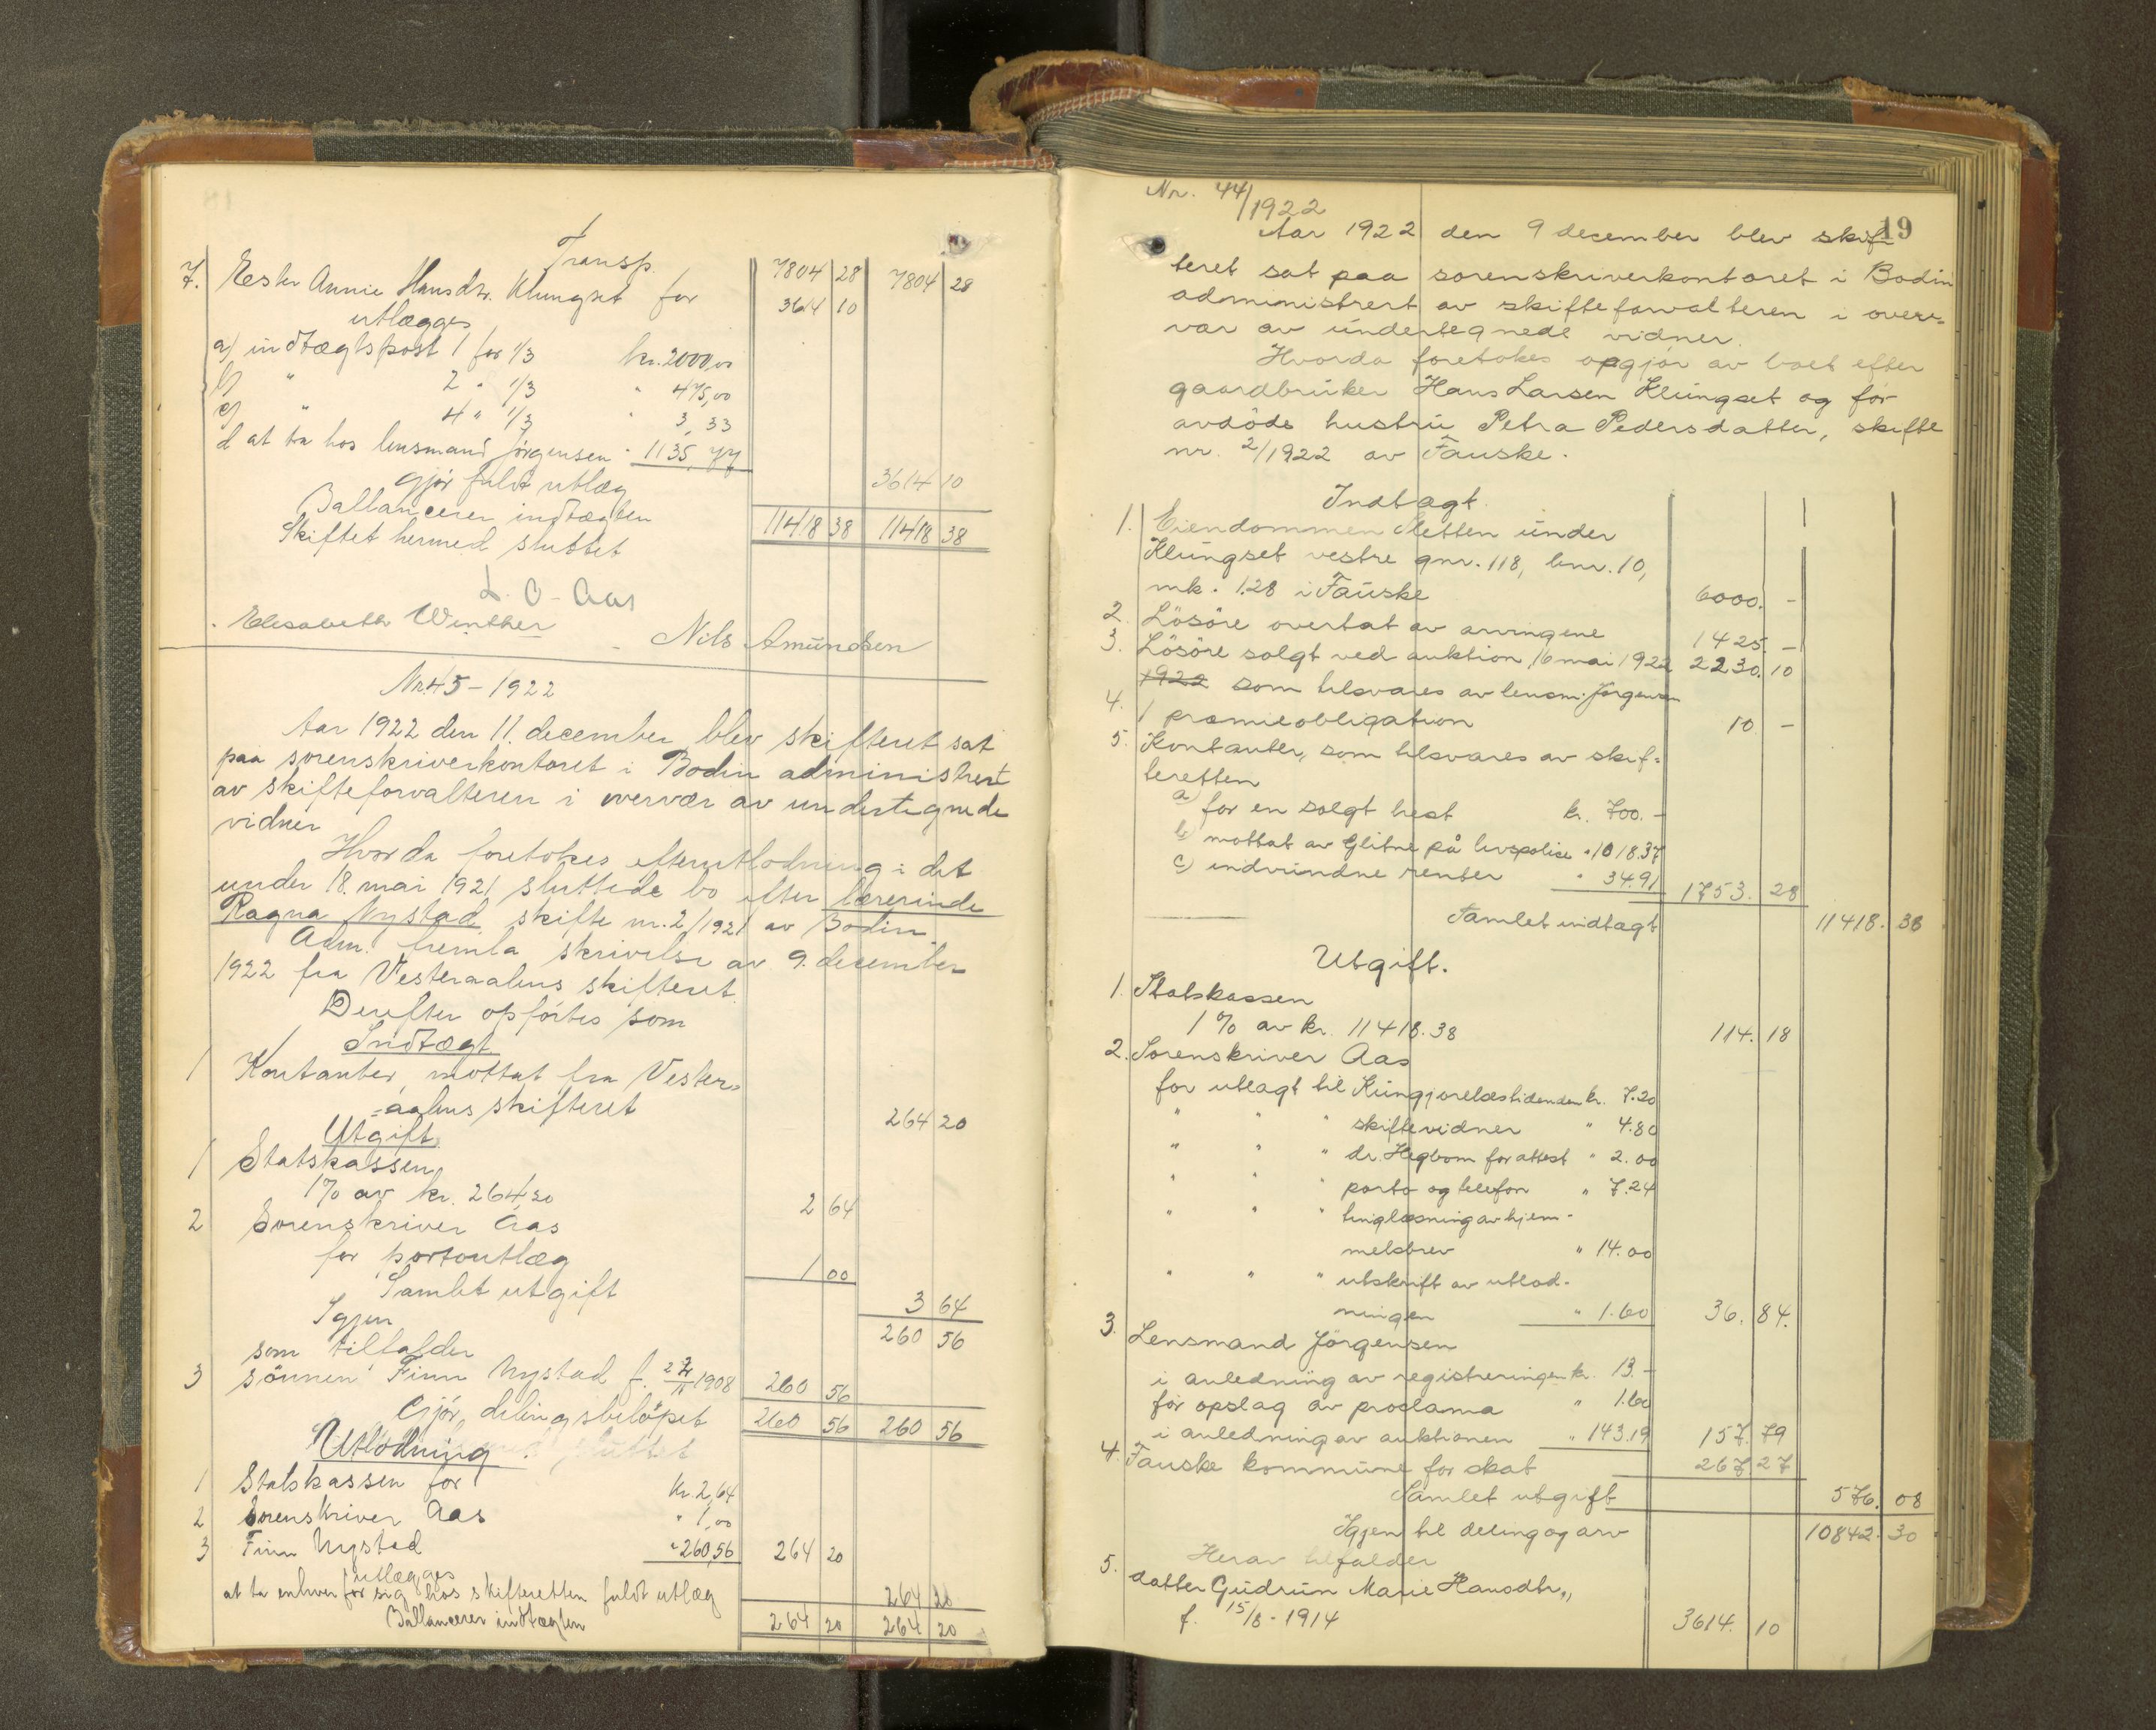 Transp. 7804 28 7804 28
7. Ester Annie Hansdtr. Klungset for 3614 10
utlægges
a) indtægtspost 1 for 1/3 kr. 2000,00
b) " 2 " 1/3 " 475,00
c) " 4 " 1/3 " 3,33
d at ta hos lensmand Jørgensen " 1135,77
gjør fuldt utlæg 3614 10
Ballancerer indtægten 11418 38 11418 38
Skiftet hermed sluttet
L. O. Aas
Elisabeth Winther
Nils Amundsen
Nr. 45 - 1922
Aar 1922 den 11. december blev skifteret sat
paa sorenskriverkontoret i Bodin administrert
av skifteforvalteren i overvær av undertegnede
vidner
Hvor da foretokes efterutlodning i det
under 18. mai 1921 sluttede bo efter lærerinde
Ragna Nystad, skifte nr. 2/1921 av Bodin.
Adm. fremla skrivelse av 9. december
1922 fra Vesteraalens skifteret.
Derefter opførtes som
Indtægt
1 Kontanter, mottat fra Vester=
=aalens skifteret 264 20
Utgift
1 Statskassen
1% av kr. 264,20 2 64
2 Sorenskriver Aas
for portoutlæg 1 00
Samlet utgift 3 64
Igjen 260 56
som tilfalder
3 sønnen Finn Nystad f. 1908 260 56
Gjør delingsbeløpet 260 56 260 56
Utlodning
1 Statskassen for Kr. 2,64
2 Sorenskriver Aas " 1,00
3 Finn Nystad " 260,56 264 20
utlægges
at ta enhver for sig hos skifteretten fuldt utlæg 264 20
Ballancerer indtægten 264 20 264 20
Nr. 44/1922
19
Aar 1922 den 9 december blev skif
teret sat paa sorenskriverkontoret i Bodin
administrert av skifteforvalteren i over=
vær av undertegnede vidner.
Hvorda foretokes opgjør av boet efter
gaardbruker Hans Larsen Klungset og før
avdøde hustru Petra Pedersdatter, skifte
nr. 2/1922 av Fauske.
Indtægt.
1. Eiendommen Sletten under
Klungset vestre gnr. 118, bnr. 10,
mk. 1.28 i Fauske 6000. -
2. Lösöre overtat av arvingene 1425. -
3. Lösöre solgt ved auktion 16 mai 1922 2230. 10
1922 som tilsvares av lensm. Jørgensen
4. 1 præmieobligation 10 -
5. Kontanter, som tilsvares av skif=
teretten
a) for en solgt hest kr. 700.-
b) mottat av Glitne på livspolise " 1018.37
c) indvundne renter " 34.91 1753. 28
Samlet indtægt 11418. 38
Utgift.
1. Statskassen
1% av kr. 11418.38 114. 18
2. Sorenskriver Aas
for utlagt til Kungjørelsestidenden kr. 7.20
" " " skiftevidner " 4.80
" " " dr. Hegbom for attest " 2.00
" " " porto og telefon " 7.24
" " " tinglæsning av hjem-
melsbrev " 14.00
" " " utskrift av utlod-
ningen " 1.60 36. 84.
3. Lensmand Jørgensen
i anledning av registreringen kr. 13.-
for opslag av proclama " 1.60
i anledning av auktionen " 143.19 157. 79
4. Fauske kommune for skat 267 27
Samlet utgift 576. 08
Igjen til deling og arv 10842. 30
Herav tilfalder
5. datter Gudrun Marie Hansdtr.,
f. 15/8 - 1914 3614. 10